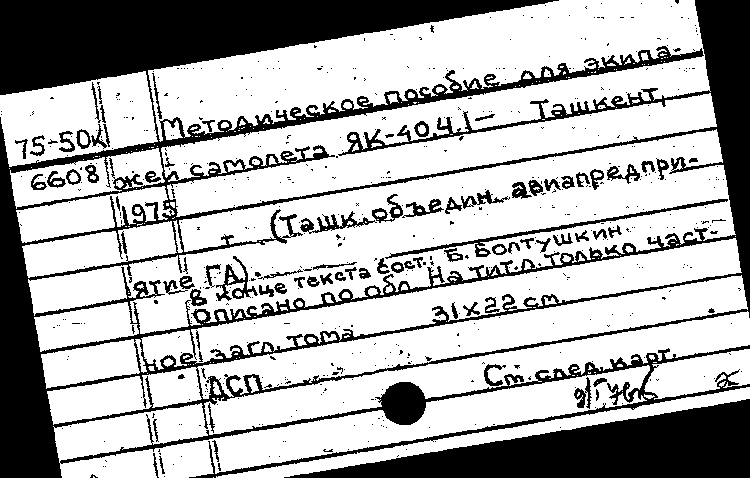 75-50к Методическое пособие для экипа-
6608 жей самолета ЯК-40.Ч.1- Ташкент,
1975
т (Ташк. объедин. авиапредпри-
ятие ГА).
В конце текста сост.: Б. Болтушкин.
Описано по обл. На тит.л. только част-
ное загл. тома. 31х22 см.
ДСП.
См. след. карт.